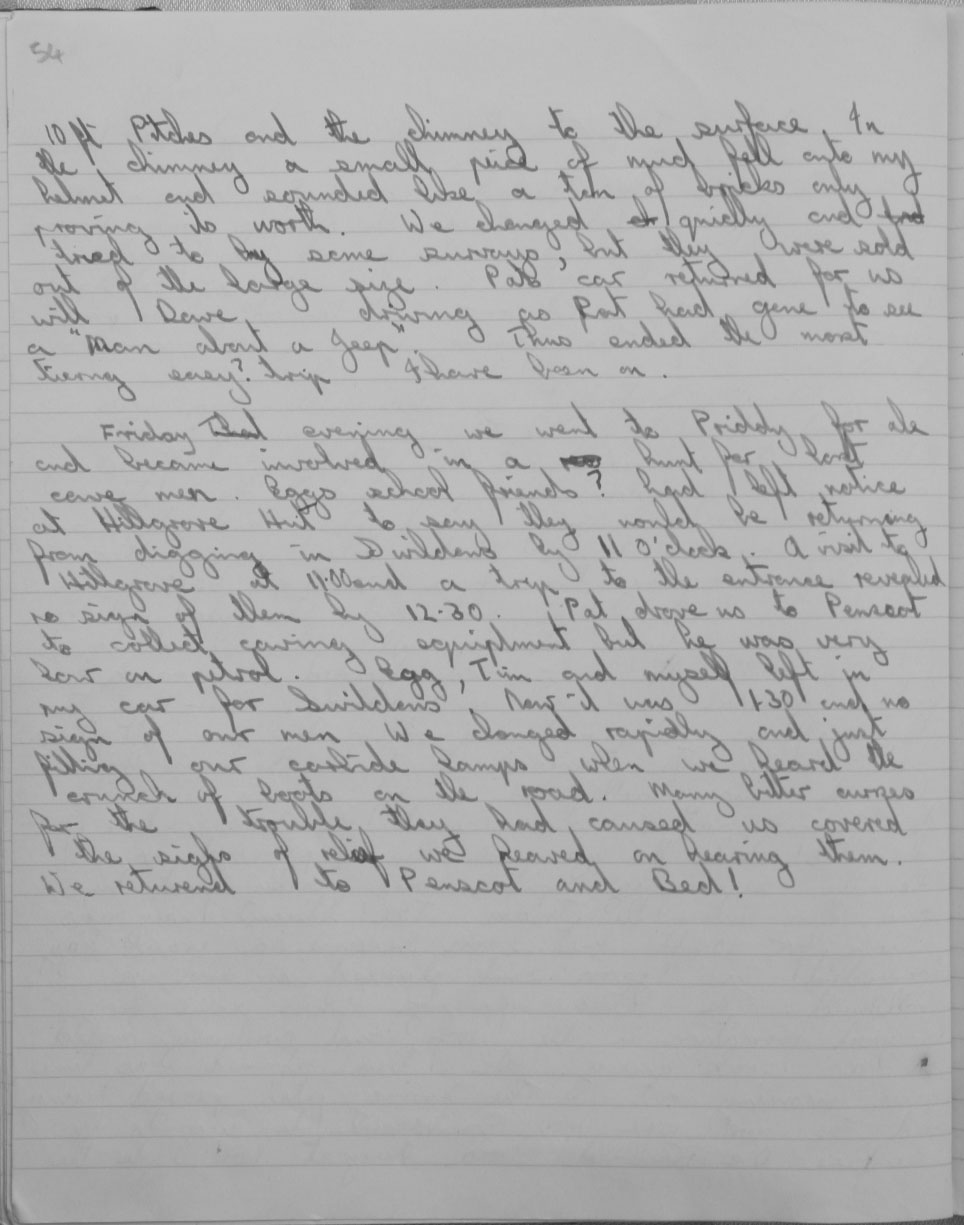 54
10 ft Pitches and the chimney to the surface. In
the chimney a small piece of mud fell onto my
helmet and sounded like a ton of bricks only
proving its worth. We changed quickly and
tried to buy some surveys, but they were sold
out of the large size. Pats' car returned for us
with Dave driving as Pat had gone to see
a "Man about a Jeep". Thus ended the most
tiering easy? trip I have been on.
Friday evening we went to Priddy for ale
and became involved in a hunt for lost
cave men. Eggs school friends? had left notice
at Hillgrove Hut to say they would be returning
from digging in Swildons by 11 O'clock. A visit to
Hillgrove at 11:00 and a trip to the entrance revealed
no sign of them by 12-30. Pat drove us to Penscot
to collect caving equiptment but he was very
low on petrol. Egg, Tim and myself left in
my car for Swildons, Now it was 1+30 and no
sign of our men We changed rapidly and just
filling our carbide lamps when we heard the
crunch of boots on the road. Many bitter curses
for the trouble they had caused us covered
the sighs of relief we heaved on hearing them.
We returend to Penscot and Bed!